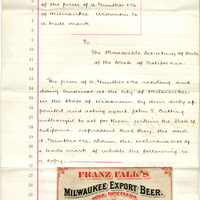 of the firm of A. Gunther & Co
of Milwaukee Wisconsin to
a trade mark
To
The Honorable Secretary of State
of the State of California.
The firm of A. Gunther & Co residing and
doing business at the City of Milwaukee
in the State of Wisconsin by their duly ap-
pointed and acting agent John T. Cutting
authorized to act for them within the State of
California represent that they the said
A. Gunther & Co. claim the exclusive use of
trade mark of which the following is
a copy.
FRANZ FALK'S
MILWAUKEE EXPORT BEER.
SOLE BOTTLERS